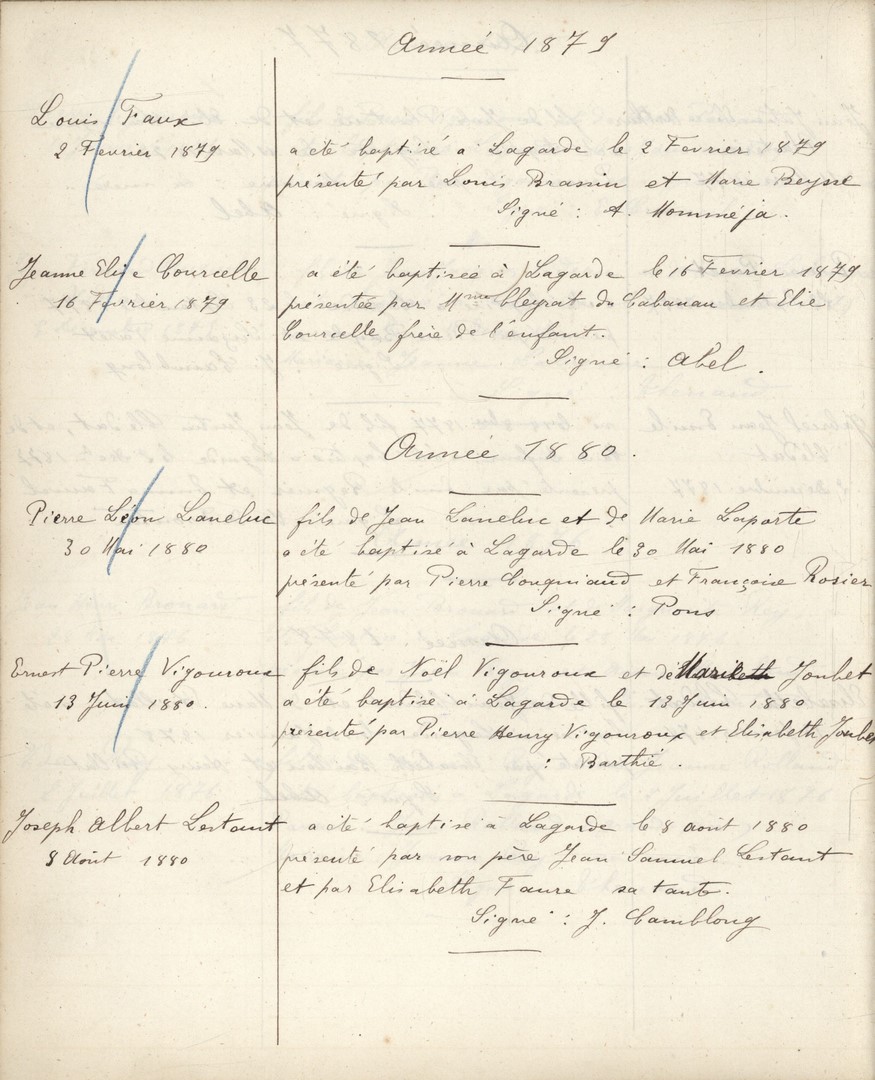 Année 1879
Louis Faux
2 Fevrier 1879
a été baptisé a Lagarde le 2 Fevrier 1879
présenté par Louis Brassin et Marie Beysse
Signé : A. Momméja.
Jeanne Elise Courcelle
16 Fevrier 1879
a été baptisée à Lagarde le 16 Fevrier 1879
présentée par Mme Cleyrat du Cabanau et Elie
Courcelle frère de l'enfant.
Signé : Abel.
Année 1880.
Pierre Léon Laneluc
30 Mai 1880
fils de Jean Laneluc et de Marie Laporte
a été baptisé à Lagarde le 30 Mai 1880
présenté par Pierre et Françoise Rosier
Signé : Pons
Ernest Pierre Vigouroux
13 Juin 1880.
fils de Noël Vigouroux et de Joubet
a été baptisé à Lagarde le 13 Juin 1880
présenté par Pierre Henry Vigouroux et Elisabeth Joubet
: Barthié.
Joseph Albert Lestant
8 Août 1880
a été baptisé à Lagarde le 8 août 1880
présenté par son père Jean Samuel Lestant
et par Elisabeth Faure sa tante.
Signé : J. Camblong